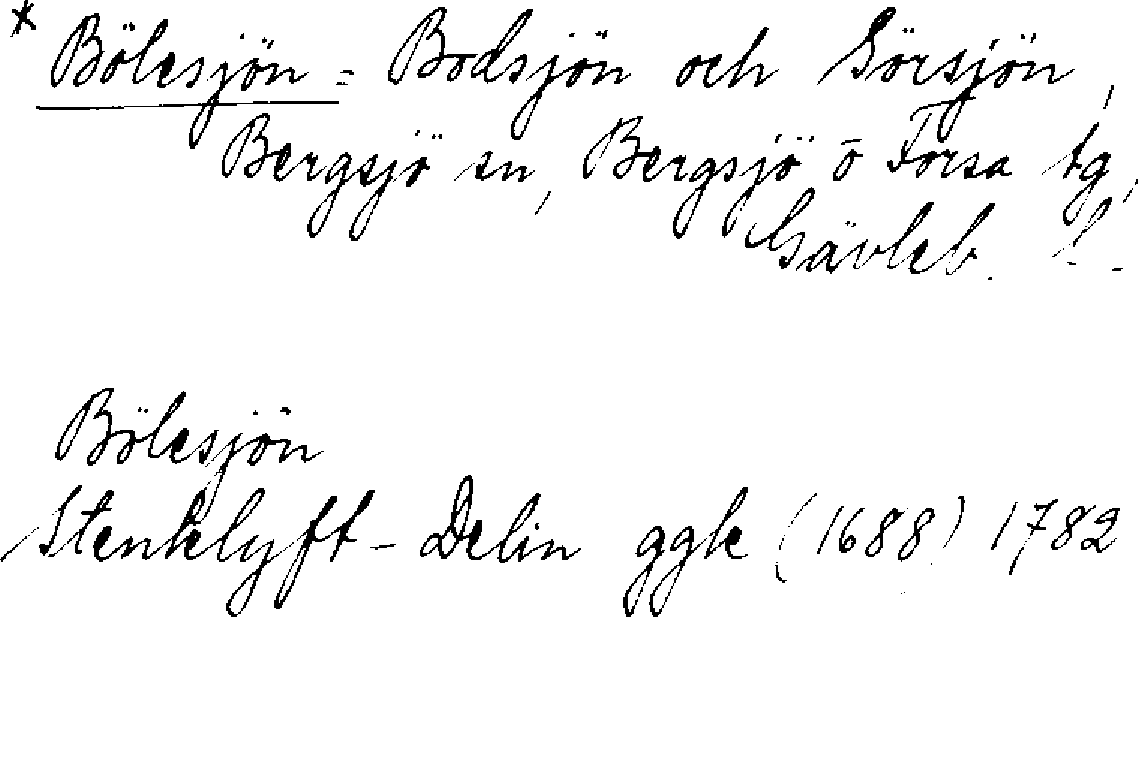 * Bölesjön = Bodsjön och Sörsjön,
Bergsjö sn, Bergsjö o Forsa tg,
Gävleb. l.
Bölesjön
Stenklyft - Delin ggk (1688) 1782